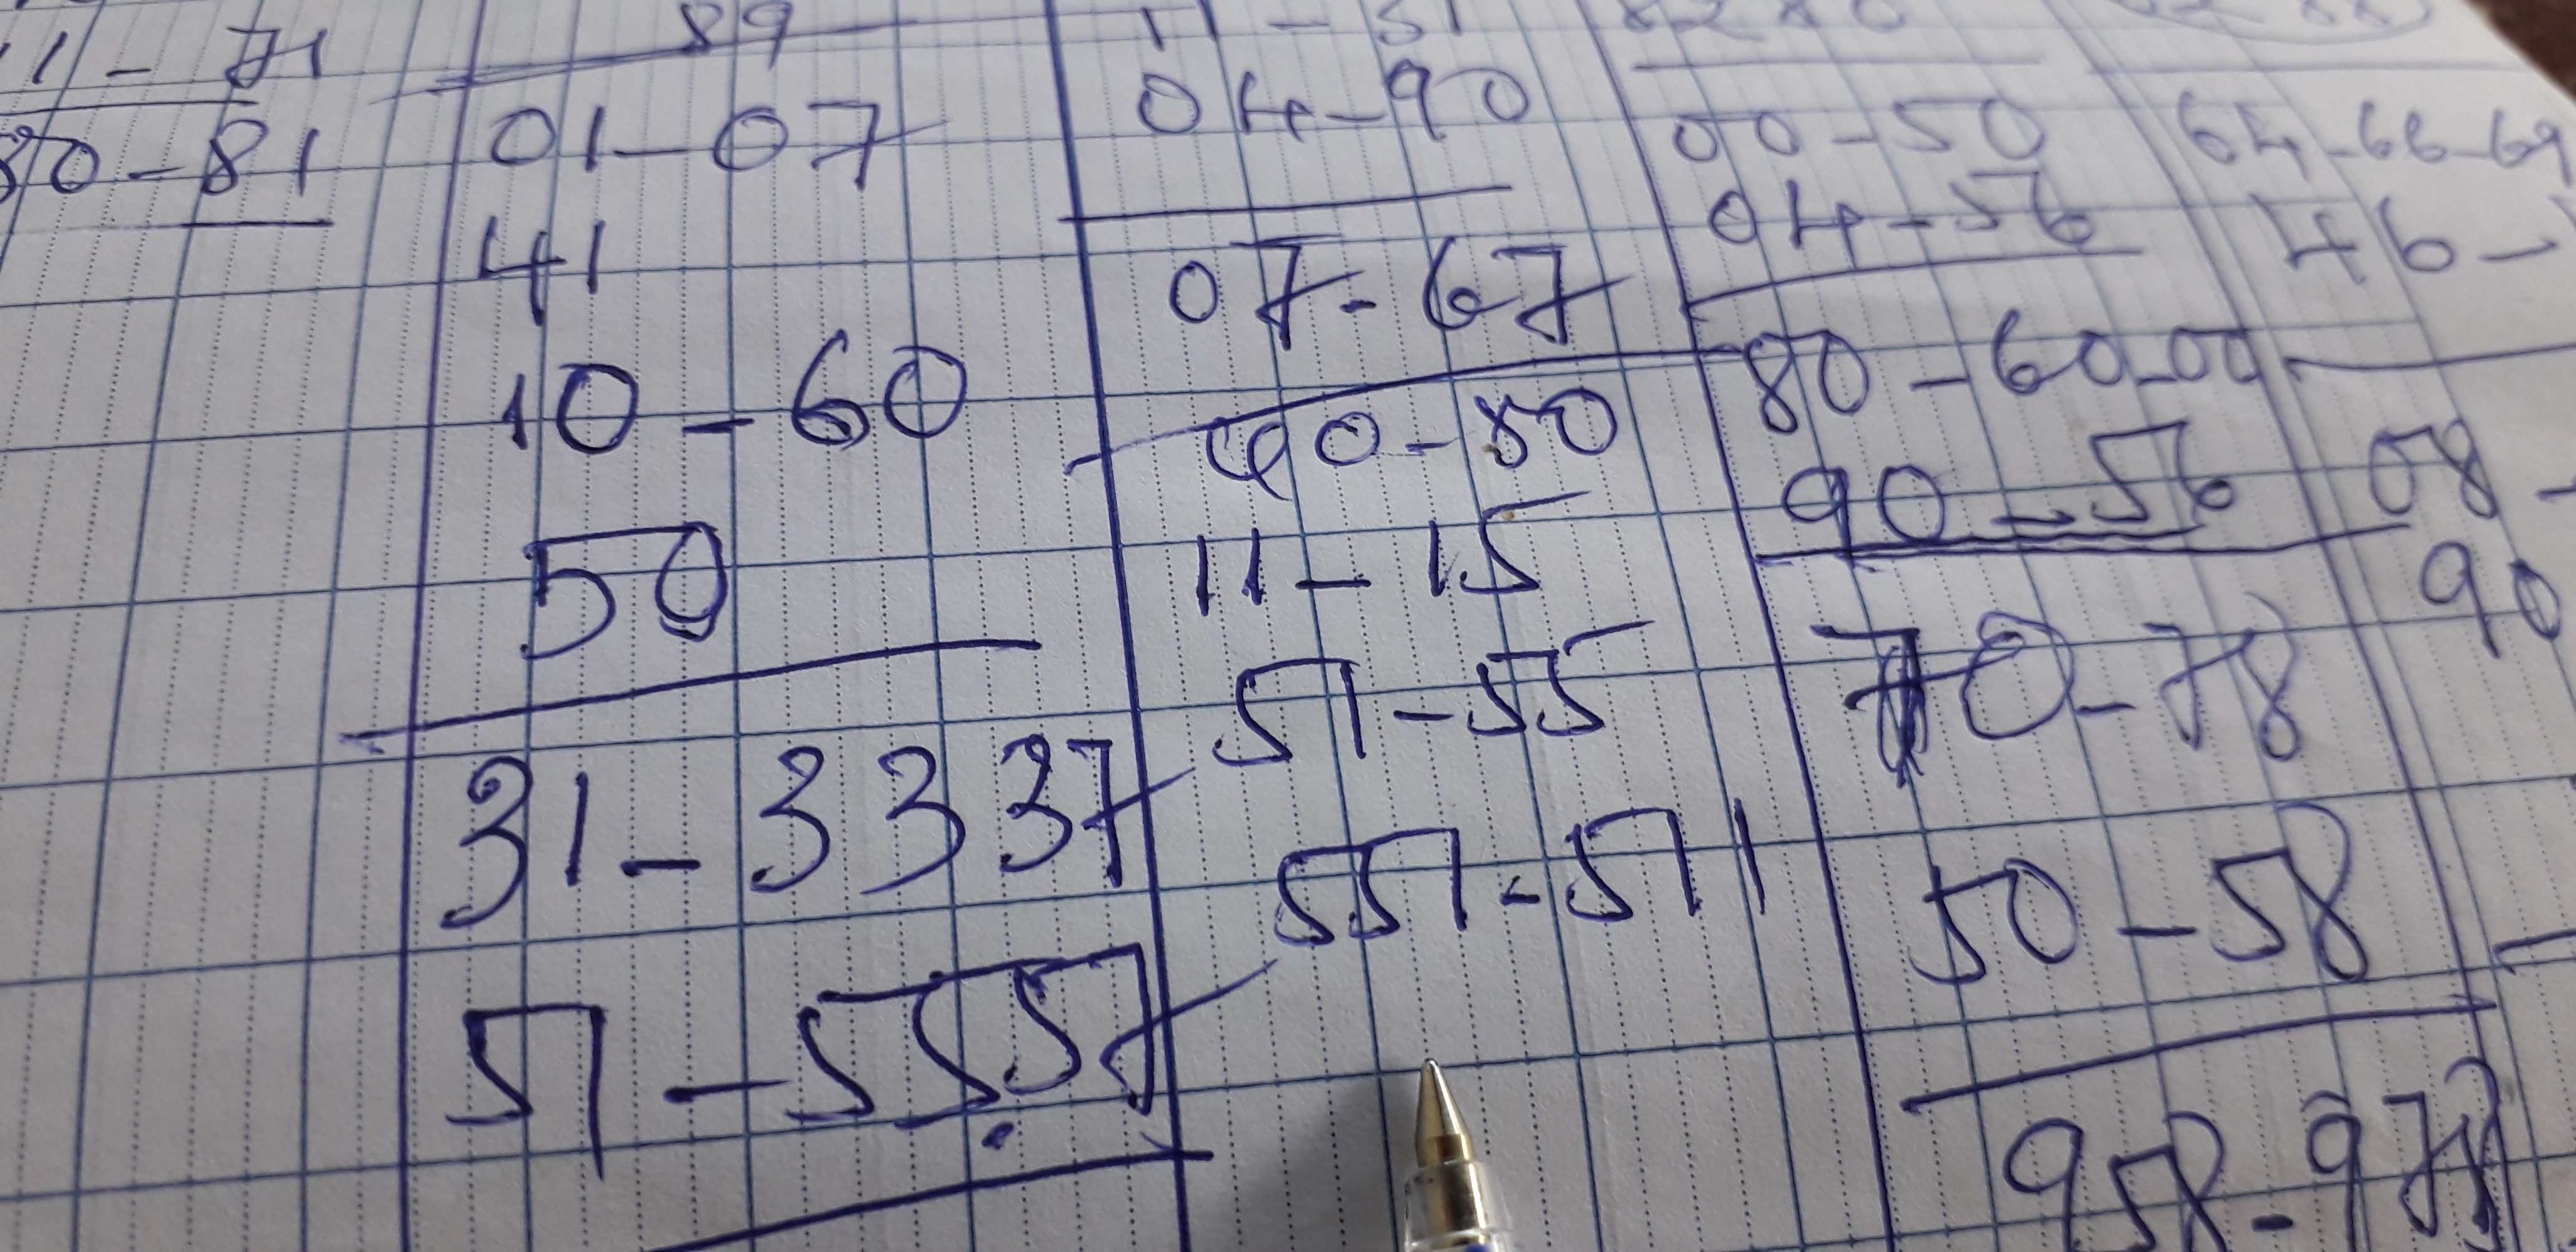 1 - 71
80 - 81
89
01 - 07
41
10 - 60
50
31 - 33 37
51 - 55 57
11 - 51
04 - 90
07 - 67
90 - 80
11 - 15
51 - 55
551 - 511
00 - 50
04 - 56
80 - 60 - 00
90 - 56
70 - 78
50 - 58
958 - 978
64 - 66 - 69
46 -
08 -
90